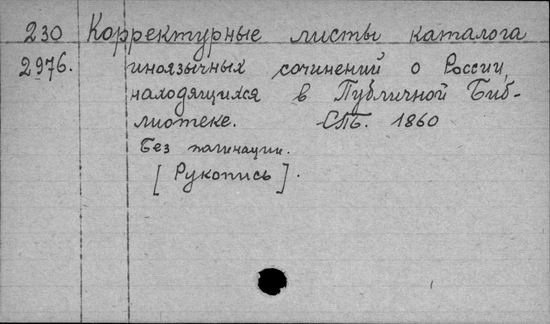 230 Корректурные листы каталога
2976. иноязычных сочинений о России,
находящихся в Публичной Биб-
лиотеке. СПБ. 1860
Без пагинации.
[Рукопись].